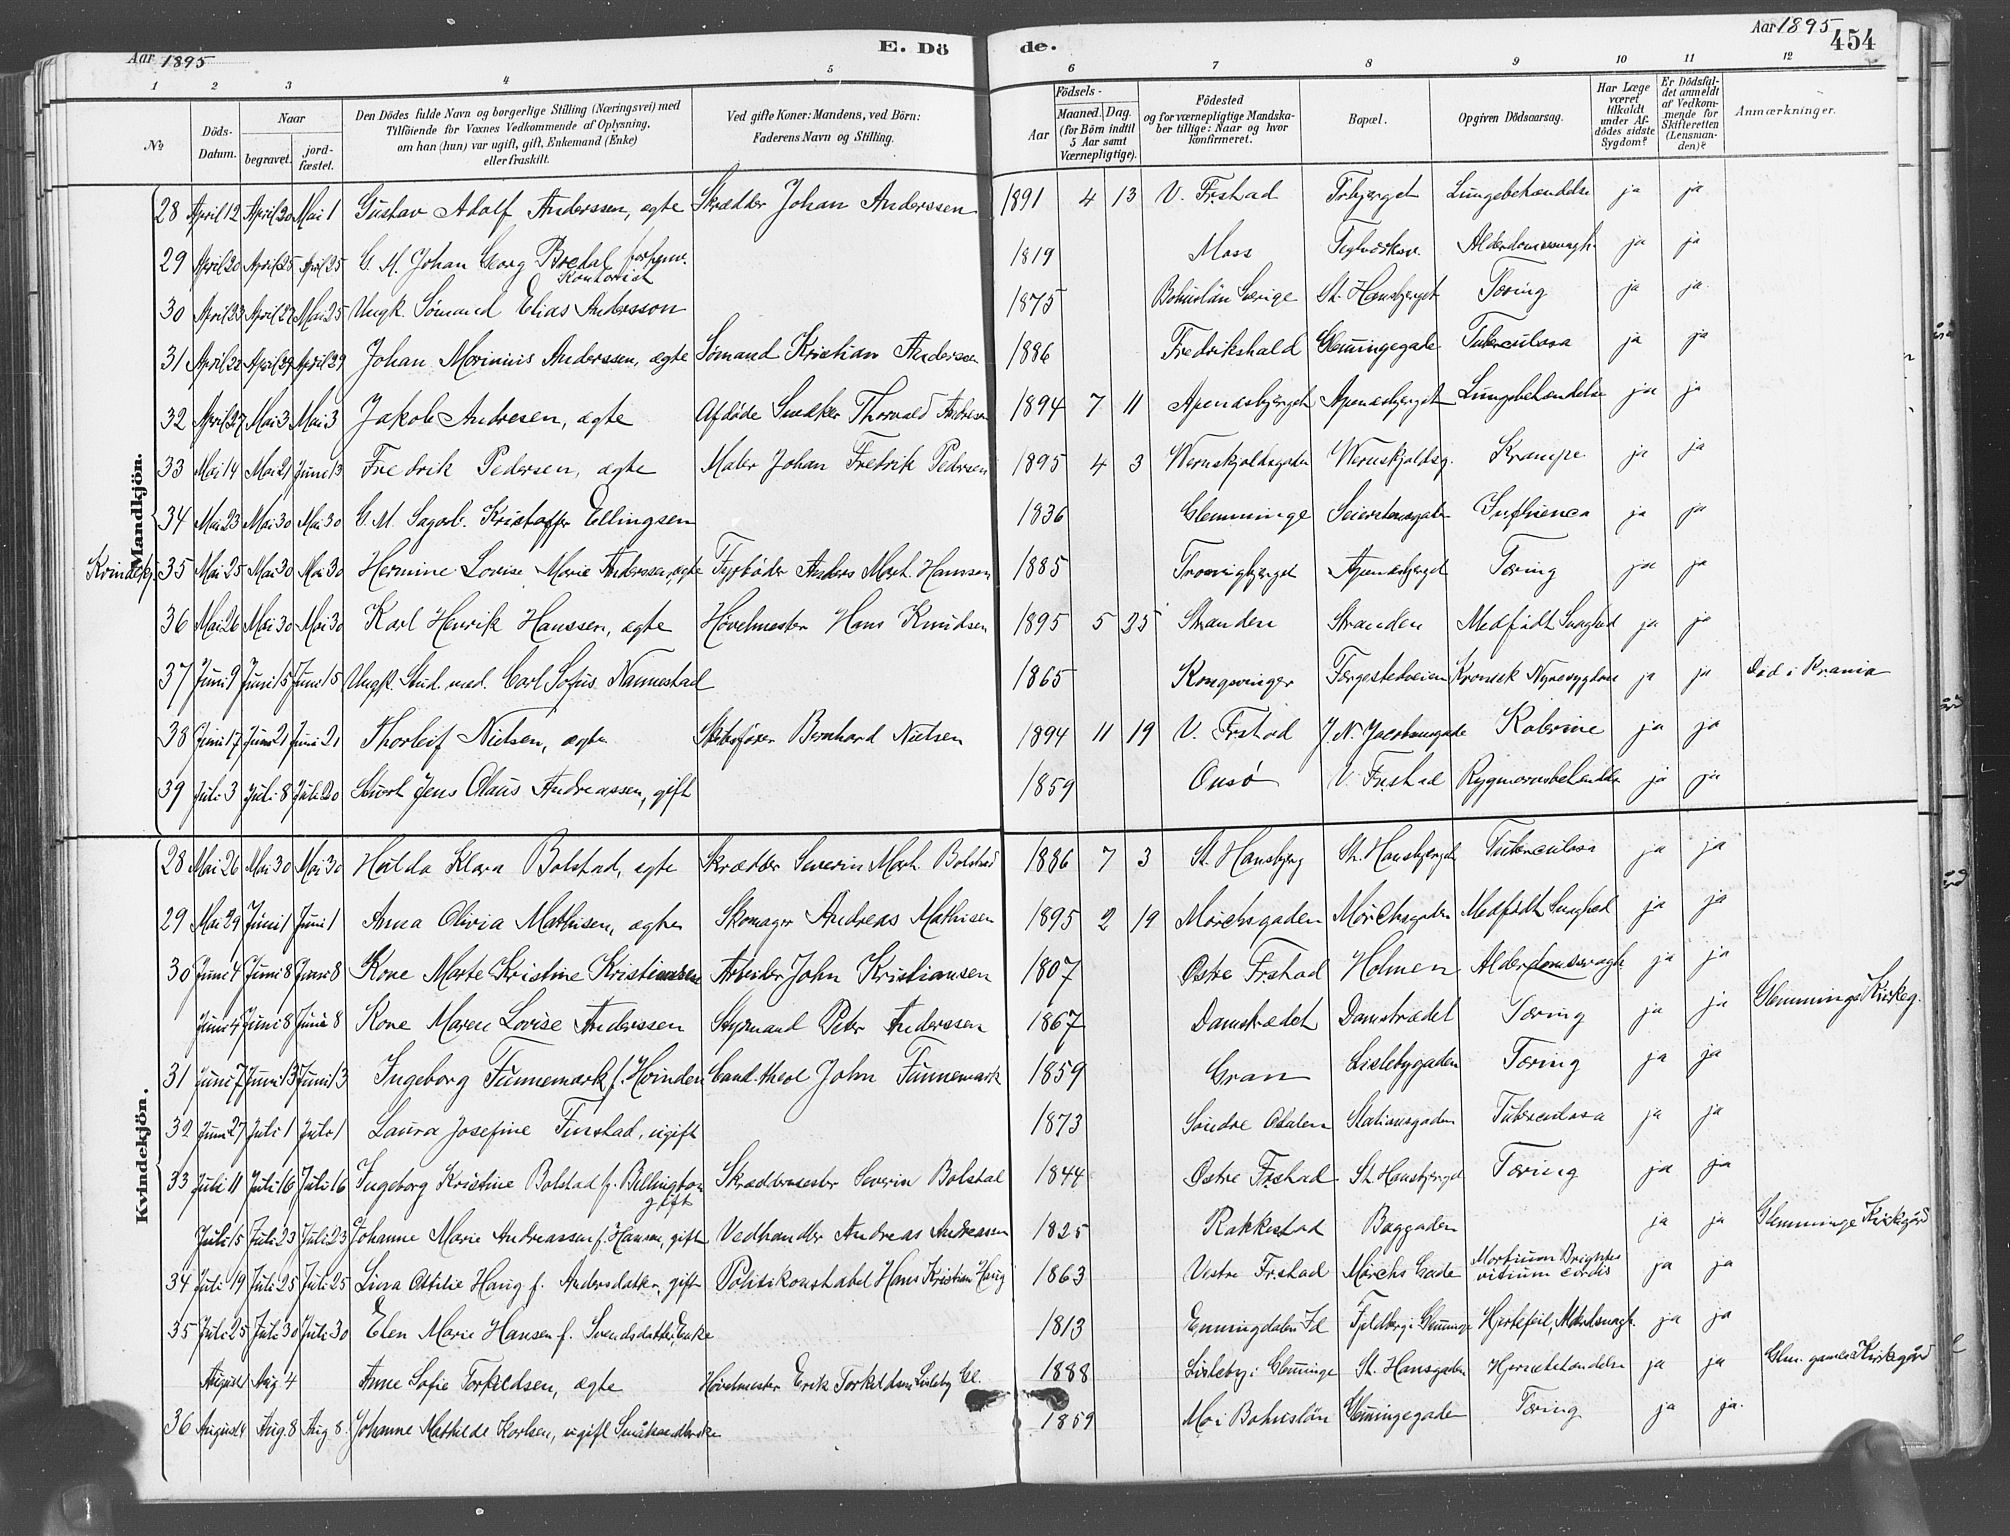 Aar 1895 E. Dö de. Aar 1895 454
1 2 3 4 5 6 7 8 9 10 11 12
No. Döds-Datum. Naar begravet. jord-fæstet. Den Dödes fulde Navn og borgerlige Stilling (Næringsvei) med Tilföiende for Voxnes Vedkommende af Oplysning, om han (hun) var ugift, gift, Enkemand (Enke) eller fraskilt. Ved gifte Koner: Mandens, ved Börn: Faderens Navn og Stilling. Födsels- Aar Maaned. Dag. (for Börn indtil 5 Aar samt Værnepligtige). Födested og for værnepligtige Mandska-ber tillige: Naar og hvor konfirmeret. Bopæl. Opgiven Dödsaarsag. Har Læge været tilkaldt under Af-dödes sidste Sygdom? Er Dödsfal-det anmeldt af Vedkom-mende for Skifteretten (Lensman-den)? Anmærkninger.
Mandkjön.
28 April 12 April 20 Mai 1 Gustav Adolf Anderssen, ægte Skrædder Johan Anderssen 1891 4 13 V. Fr.stad Lungebetændelse ja ja
29 April 20 April 25 April 25 G. M. Johan Georg Bredal, Kontorist 1819 Moss Alderdomssvagh. ja ja
30 April 23 April 27 Mai 25 Ungk. Sømand Elias Andersson 1875 Bohuslän Sverige St. Hansbjerget Tæring ja ja
31 April 22 April 29 April 29 Johan Marinius Anderssen, ægte Sømand Kristian Anderssen 1886 Fredrikshald Glemmingegade Tuberculosa ja ja
32 April 27 Mai 3 Mai 3 Jakob Andresen, ægte Afdøde Snedker Thorvald Andresen 1894 7 11 Apenæsbjerget Apenæsbjerget Lungebetændelse ja ja
33 Mai 14 Mai 21 Juni 13 Fredrik Pedersen, ægte Maler Johan Fredrik Pedersen 1895 4 3 Wernskjoldsgaden Wernskjoldsg. Krampe ja ja
34 Mai 23 Mai 30 Mai 30 G. M. Sagarb. Kristoffer Ellingsen 1836 Glemminge Influenca ja ja
Kvindekj. 35 Mai 25 Mai 30 Mai 30 Hermine Lovise Marie Anderssen, ægte Fyrbøder Anders Mart. Hanssen 1885 Trosvigbjerget Apenæsbjerget Tæring ja ja
36 Mai 26 Mai 30 Mai 30 Karl Henrik Hanssen, ægte Høvelmester Hans Knudsen 1895 5 25 Stranden Stranden Medfødt Svaghed ja ja
37 Juni 9 Juni 15 Juni 15 Ungk. Stud. med. Carl Sofus Nannestad 1865 Kongsvinger Færgestedveien Kronisk Nyresygdom ja ja Død i Krania
38 Juni 17 Juni 21 Juni 21 Thorleif Nielsen, ægte Skibsfører Bernhard Nielsen 1894 11 19 V. Frstad J. N. Jacobsensgade Kolerine ja ja
39 Juli 3 Juli 8 Juli 20 Jens Olaus Andreassen, gift 1859 Onsø V. Fr.stad Rygmarvsbetændelse ja ja
Kvindekjön.
28 Mai 26 Mai 30 Mai 30 Hulda Klara Bolstad, ægte Skrædder Severin Mart. Bolstad 1886 7 3 St. Hansbjerg St. Hansbjerget Tuberculosa ja ja
29 Mai 29 Juni 1 Juni 1 Anna Olivia Mathisen, ægte Skomager Andreas Mathisen 1895 2 19 Mørchsgaden Mørchsgaden Medfødt Svaghed ja ja
30 Juni 4 Juni 8 Juni 8 Kone Marte Kristine Kristiansen Arbeider John Kristiansen 1807 Østre Frstad Holmen Alderdomssvagh. ja ja
Juni 4 Juni 8 Juni 8 Kone Maren Lovise Anderssen Styrmand Peter Anderssen 1867 Damstrædet Damstrædet Tæring ja ja Glemminge Kirkeg.
31 Juni 7 Juni 13 Juni 13 Ingeborg Funnemark f. Hvinden Cand. theol John Funnemark 1859 Gran Lislebygaden Tæring ja ja
32 Juni 27 Juli 1 Juli 1 Laura Josefine Finstad, ugift 1873 Søndre Odalen Stationsgaden Tuberculosa ja ja
33 Juli 11 Juli 16 Juli 16 Ingeborg Kristine Bolstad f. Billington gift Skræddermester Severin Bolstad 1844 Østre Fr.stad St. Hansbjerget Tæring ja ja
Juli 15 Juli 23 Juli 23 Johanne Marie Andreassen f. Hansen, gift Vedhandler Andreas Andreassen 1825 Rakkestad Baggaden ja ja Glemminge Kirkegård
34 Juli 19 Juli 25 Juli 25 Lina Ottilie Haug f. Andersdatter, gift Politikonstabel Hans Kristian Haug 1863 Vestre Fr.stad Mørchs Gade Morbus Brightii vitium cordis ja ja
35 Juli 25 Juli 30 Juli 30 Elen Marie Hansen f. Svendsdatter, Enke 1813 Enningdalen Id Fjeldberg i Glemminge Hjertefeil, ja ja
August 1 Aug 4 Anne Sofie Torkildsen, ægte Høvelmester Erik Torkildsen Lisleby Gl. 1888 Lisleby i Glemminge St. Hansgaden Hjernebetændelse ja ja Glm. gamle Kirkegård
36 August 4 Aug. 8 Aug 8. Johanne Mathilde Karlsen, ugift Småhandlerske 1859 Mo i Bohuslän Glemmingegaden Tæring ja ja.